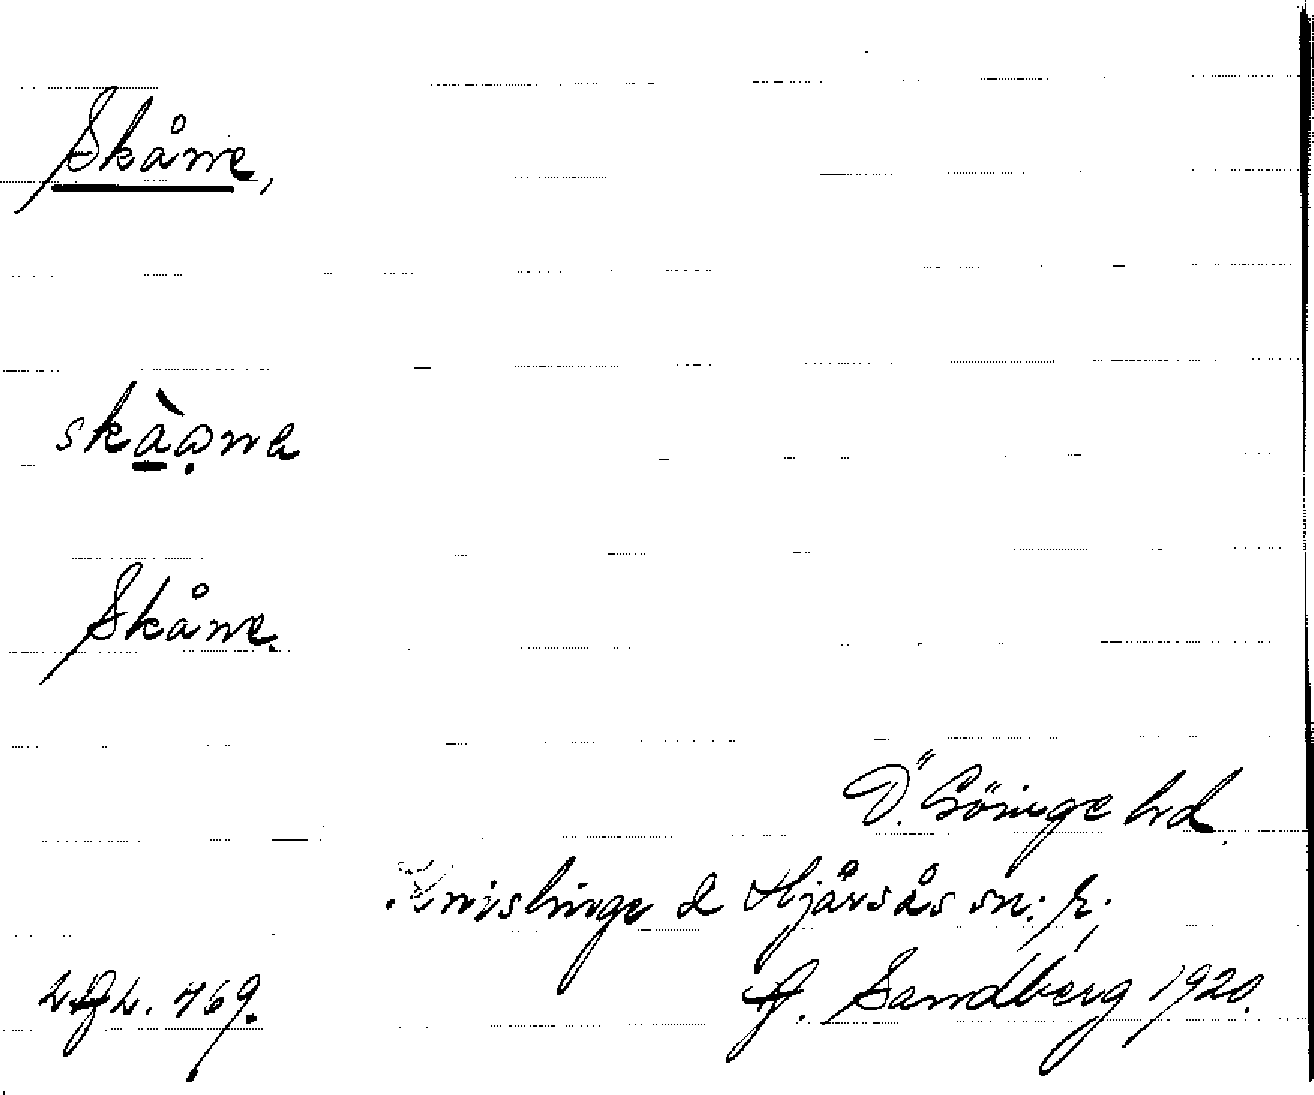 Skåne,
skàa̤na
Skåne.
Ö. Göinge hd.
Knislinge & Hjärsås sn:r.
Sandberg 1920.
469.